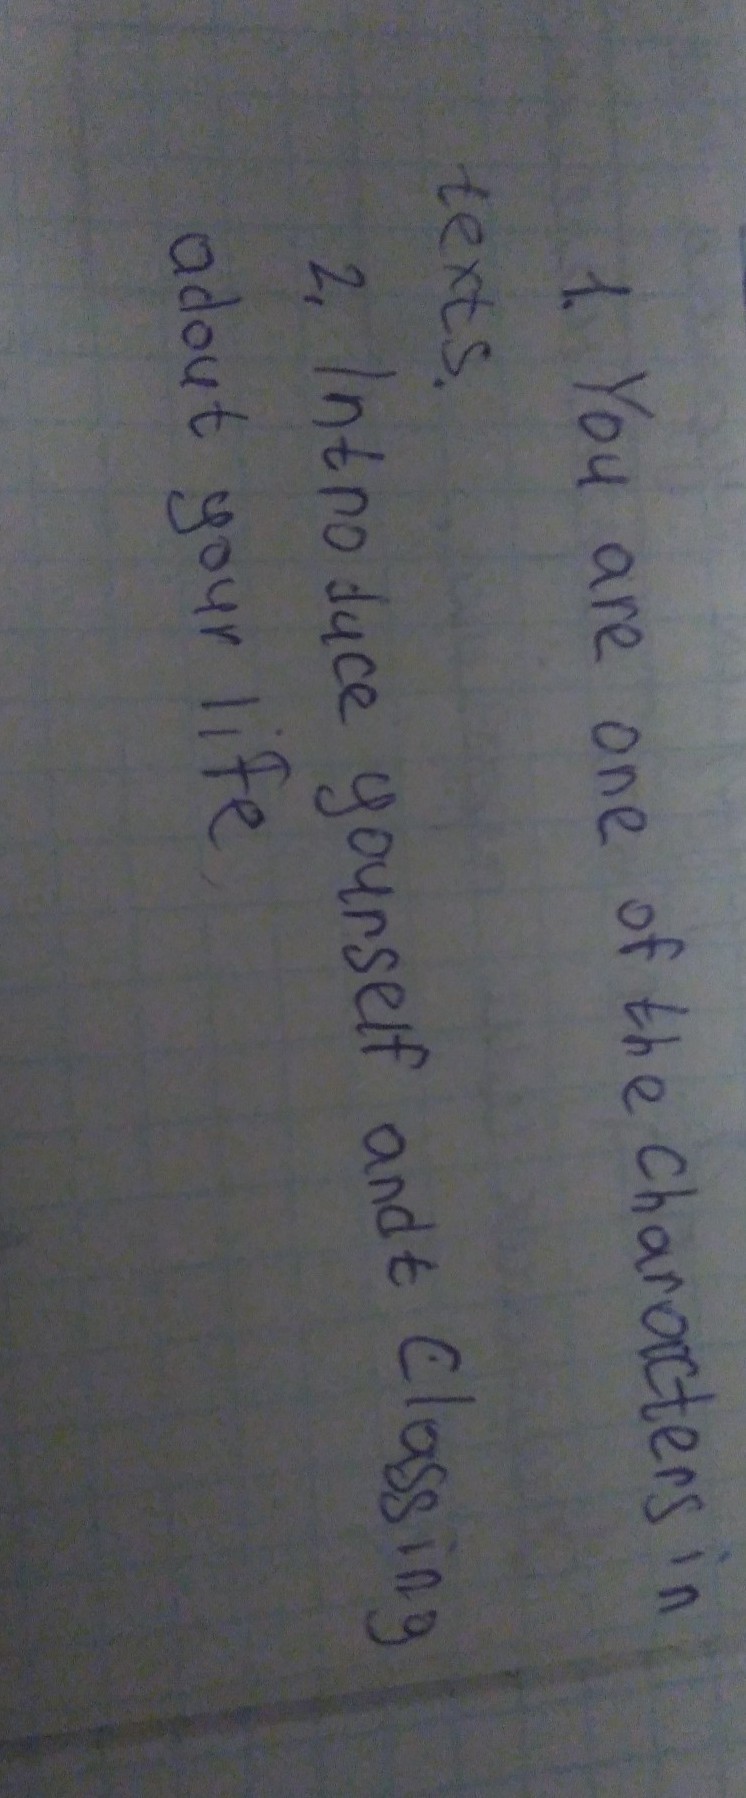 1. You are one of the characters in
texts.
2. Introduce yourself andt Classing
adout your life